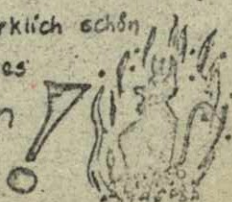 rklich schön
es
n
!